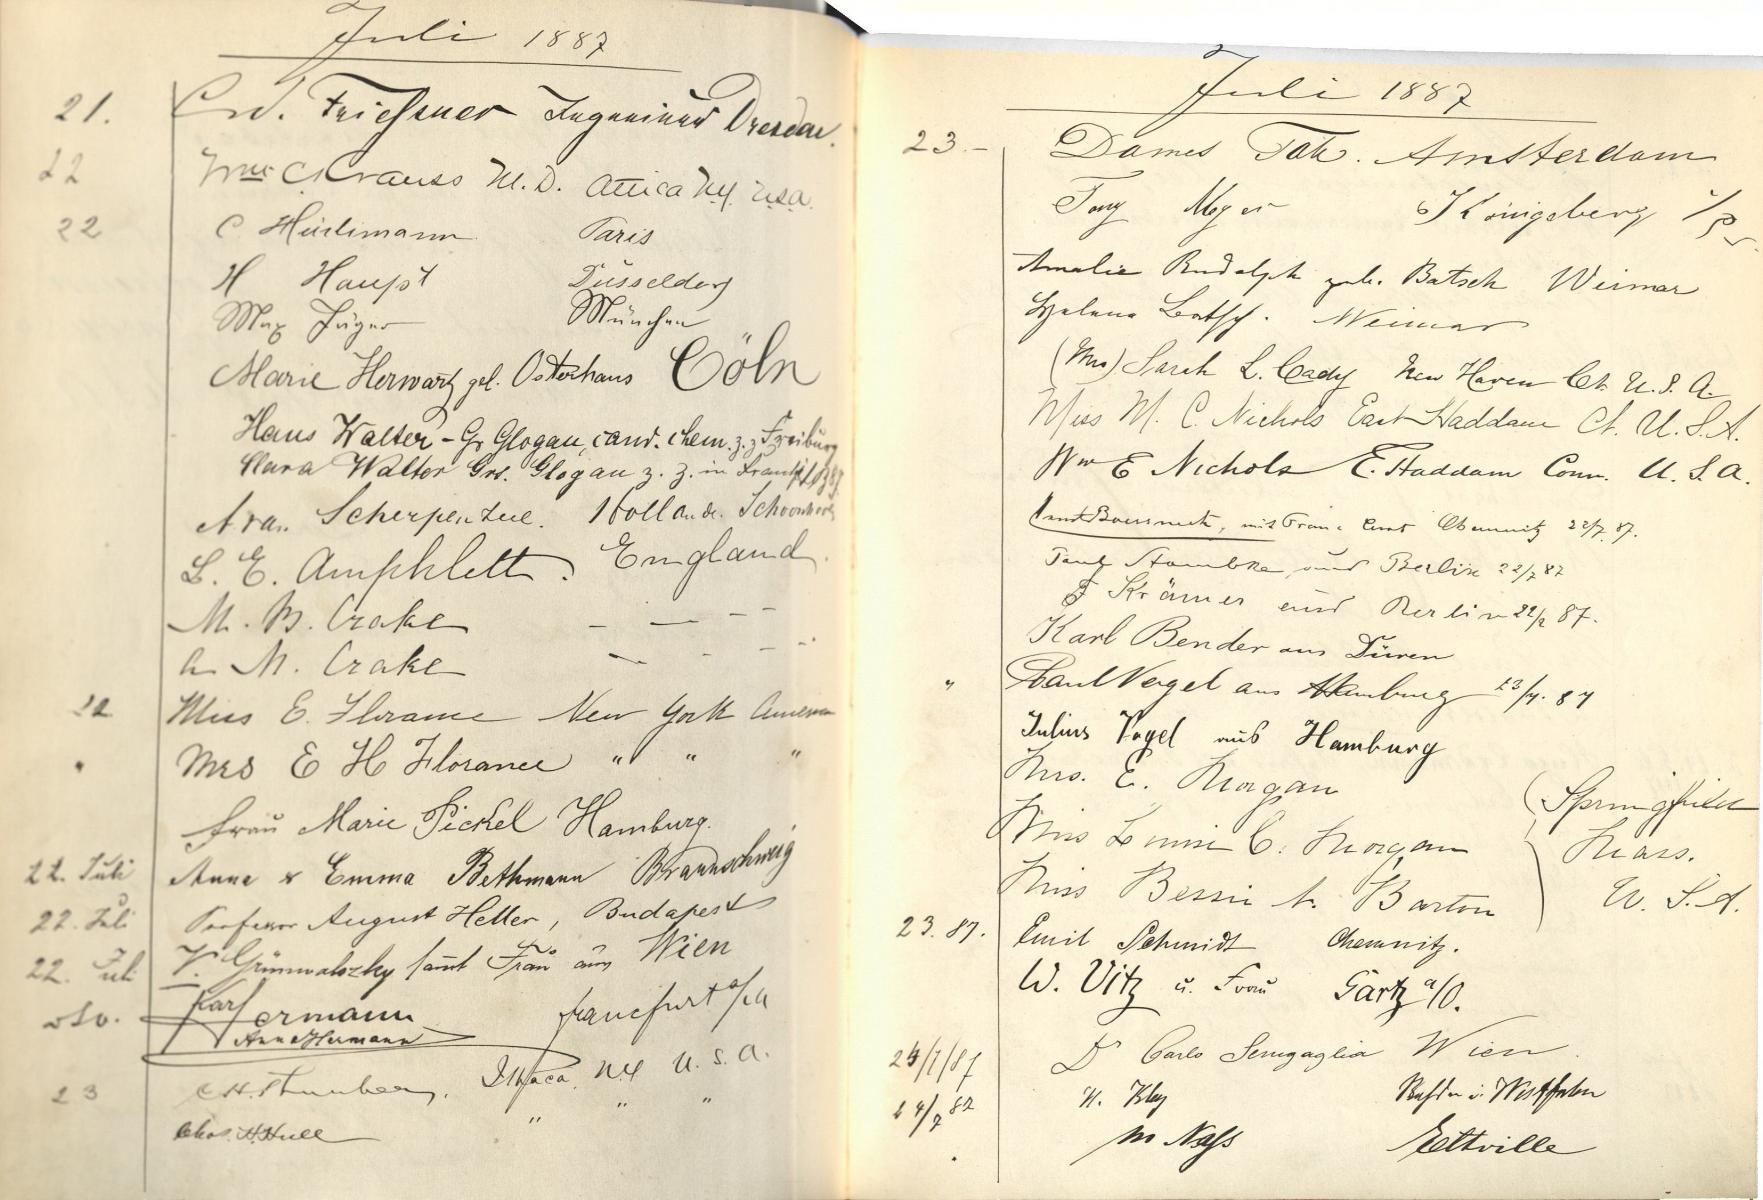 Juli 1887
21. Ed. Friessner Ingenieur Dresden.
22 Wm C. Krauss M. D. Attica N.Y. U.S.A.
22 C Hürlimann Paris
H Haupt Düsseldorf
Max Jäger München
Marie Herwartz geb. Osterhaus Cöln
Hans Walter - Gr Glogau, cand. chem. z. z. Freiburg
Clara Walter Grs. Glogau z. z. in
A van Scherpenzeel. Holland. Schoonhoven
L. E. Amphlett. England.
M. B. Crake — — — —
A M. Crake — — — —
22 Miss E. Florance New York America
" Mrs E H Florance " " "
Frau Marie Pickel Hamburg.
22. Juli Anna & Emma Bethmann Braunschweig
22. Juli Professor August Heller, Budapest
22. Juli V. Grünwalszky samt Frau aus Wien
dto. Karl Hermann Francfurt a/M
Anna Hermann
23 C. H. Thurber, Ithaca, N.Y U. S. A.
Chas. H. Hull " " "
Juli 1887
23 - Dames Amsterdam
Tony Meyer Königsberg i/Pr.
Amalie Rudolph geb. Batsch Weimar
Helene Batsch. Weimar
(Mrs) Sarah L. Cady New Haven Ct. U. S. A.
Miss M. C. Nichols East Haddam Ct. U. S. A.
Wm E Nichols E. Haddam Conn. U. S. A.
mit Frau Chemnitz 22/7. 87.
Berlin 22/7 87
F Krämer aus Berlin 22/7 87.
Karl Bender aus Düren
" Paul Vogel aus Hamburg 23/7. 87
Julius Vogel aus Hamburg
Mrs. E. Morgan
Miss C. Morgan
Miss Bessie A. Barton
Springfield
Mass.
U. S. A.
23. 87. Emil Schmidt Chemnitz.
W. Vitz u. Frau Gartz a/O.
24/7/87 Dr Carlo Senigaglia Wien.
24/7 87 H. Kley i. Westfalen
M Nass Eltville